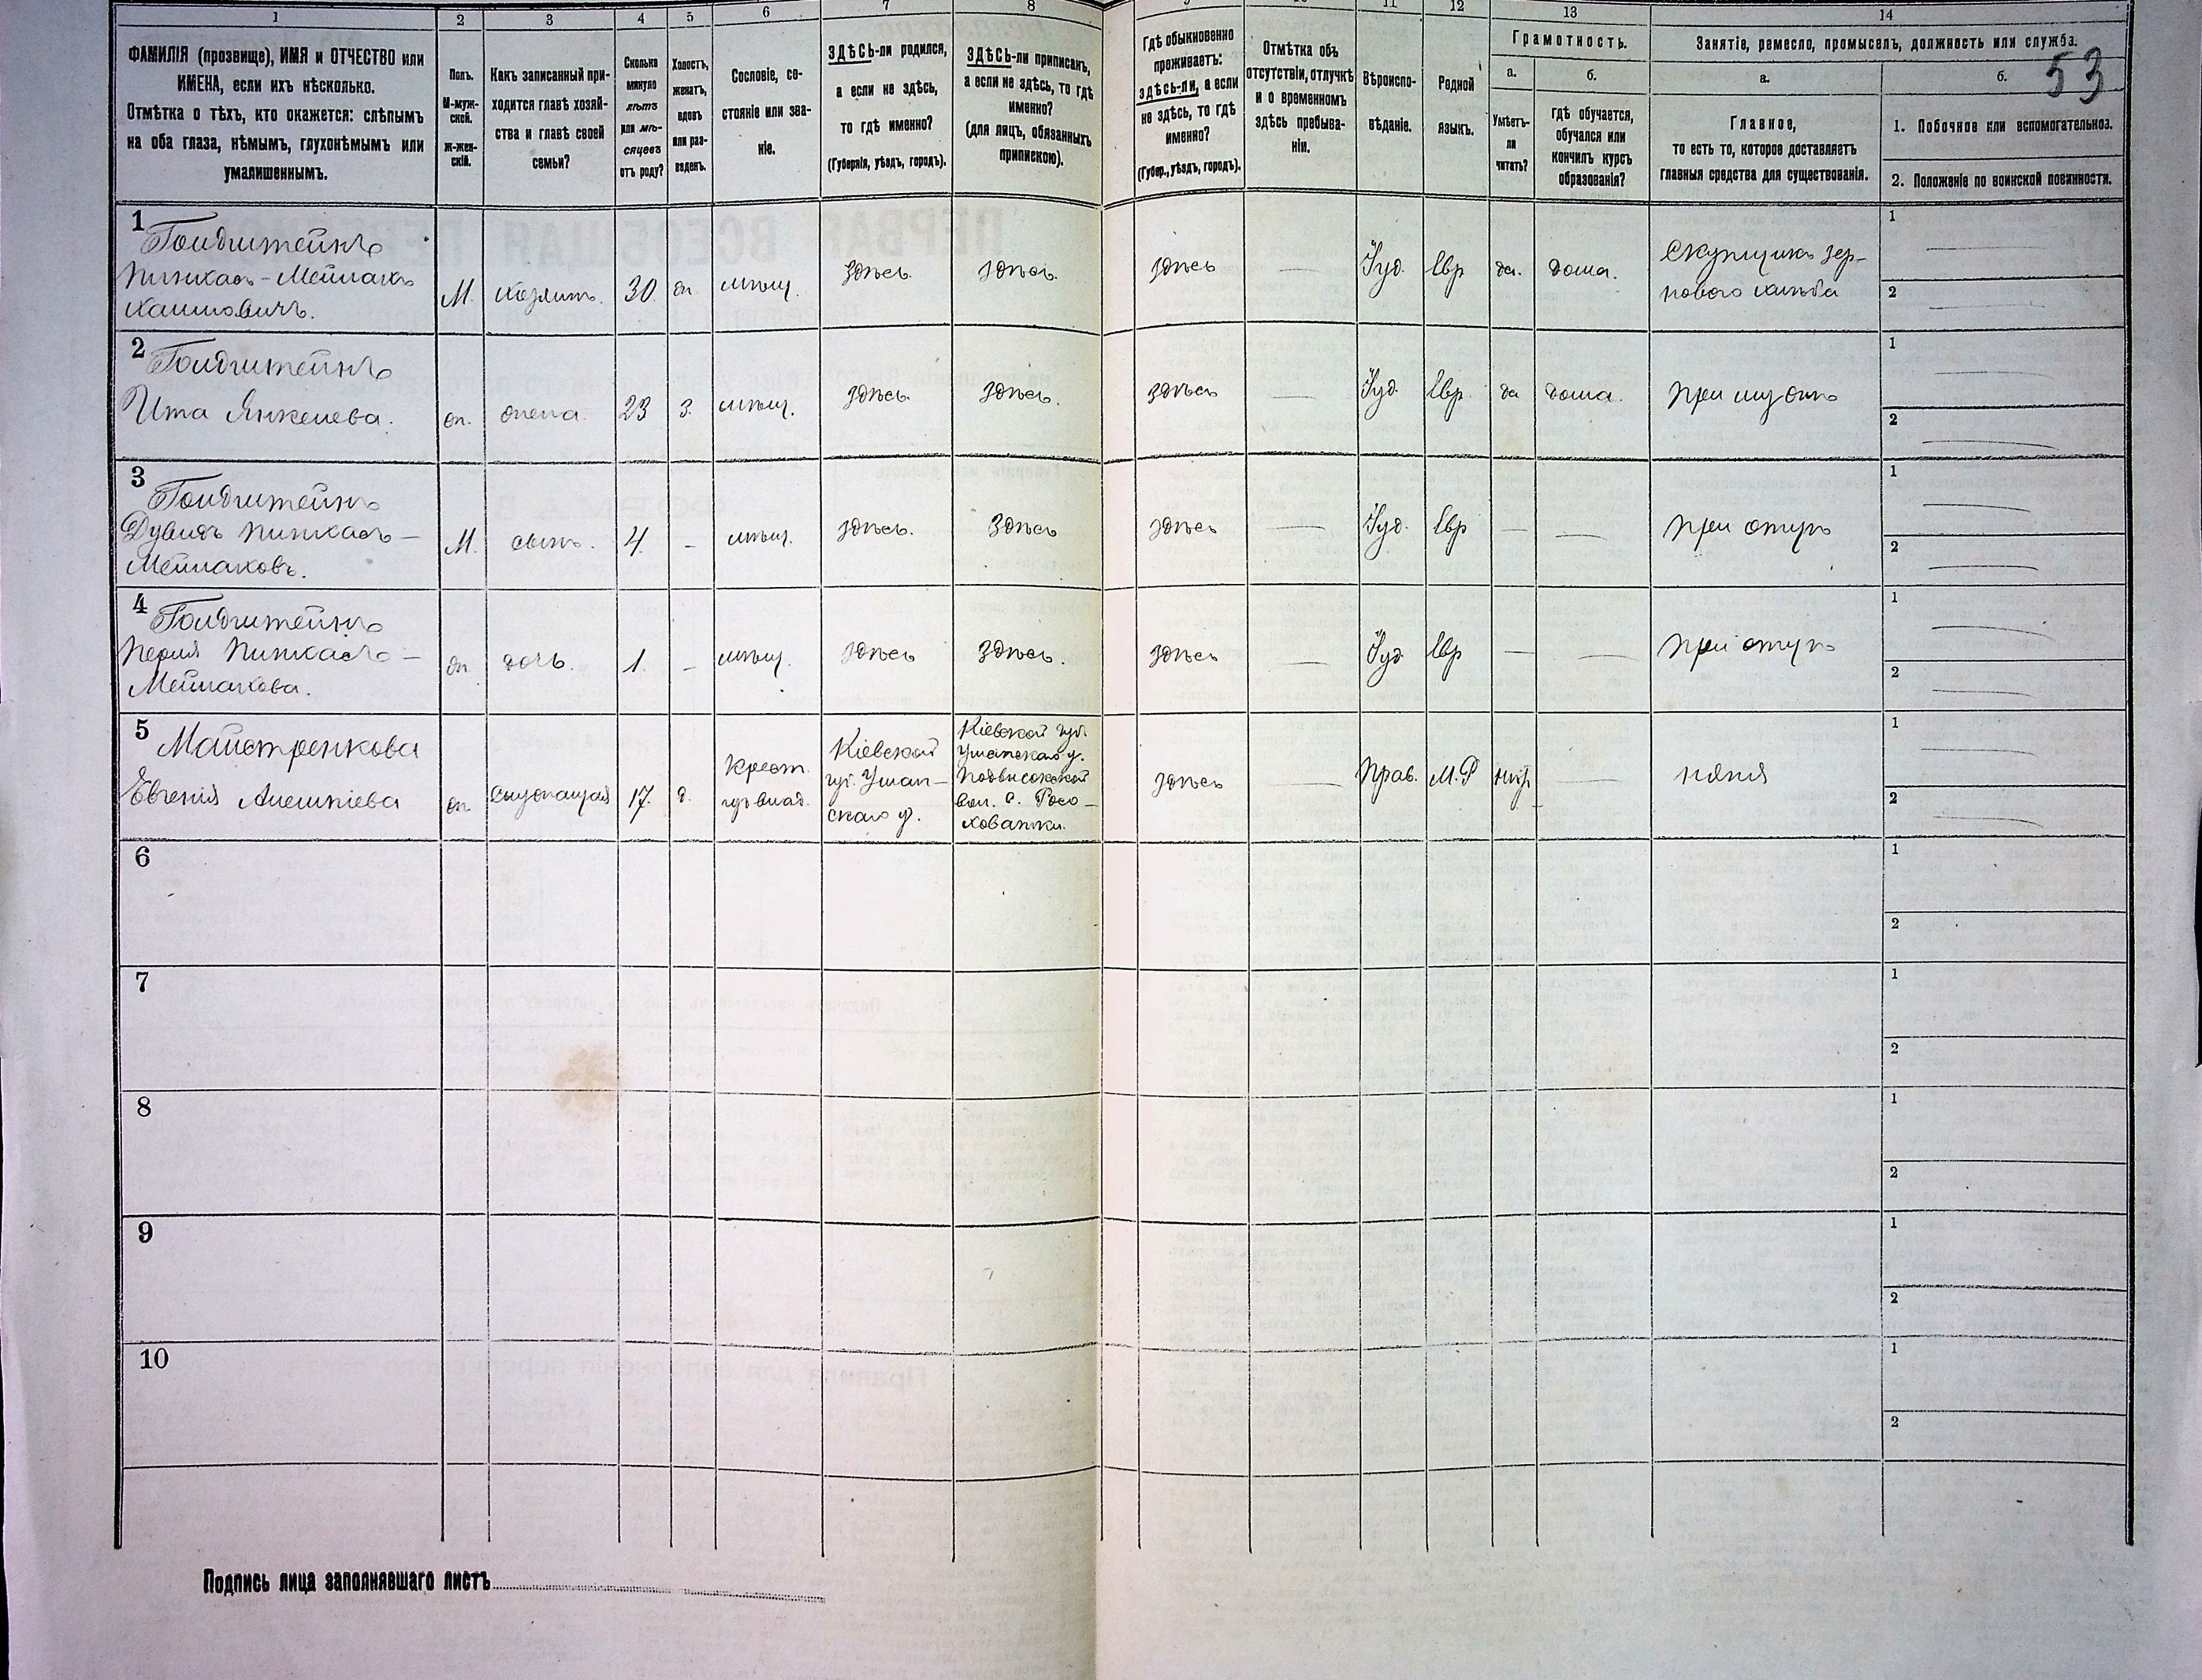 1
2
3
4
5
6
7
8
9
10
11
12
13
14
ФАМИЛІЯ (прозвище), ИМЯ и ОТЧЕСТВО или
ИМЕНА, если ихъ нѣсколько.
Отмѣтка о тѣхъ, кто окажется: слѣпымъ
на оба глаза, нѣмымъ, глухонѣмымъ или
умалишеннымъ.
Полъ.
М-муж-
ской.
ж-жен-
скій.
Какъ записанный при-
ходится главѣ хозяй-
ства и главѣ своей
семьи?
Сколько
минуло
лѣтъ
или мѣ-
сяцевъ
отъ роду?
Холостъ,
женатъ,
вдовъ
или раз-
веденъ.
Сословіе, со-
стояніе или зва-
ніе.
ЗДѢСЬ-ли родился,
а если не здѣсь,
то гдѣ именно?
(Губернія, уѣздъ, городъ).
ЗДѢСЬ-ли приписанъ,
а если не здѣсь, то гдѣ
именно?
(для лицъ, обязанныхъ
припискою).
Гдѣ обыкновенно
проживаетъ:
здѣсь-ли, а если
не здѣсь, то гдѣ
именно?
(Губер., уѣздъ, городъ).
Отмѣтка объ
отсутствіи, отлучкѣ
и о временномъ
здѣсь пребыва-
ніи.
Вѣроиспо-
вѣданіе.
Родной
языкъ.
Грамотность.
а.
б.
Умѣетъ-
ли
читать?
гдѣ обучается,
обучался или
кончилъ курсъ
образованія?
Занятіе, ремесло, промыселъ, должность или служба.
53
а.
б.
Главное,
то есть то, которое доставляетъ
главныя средства для существованія.
1. Побочное или вспомогательное.
2. Положеніе по воинской повинности.
1
Гольдштейнъ
Пинхасъ-Мейлахъ
Хаимовичъ.
М.
хозяинъ.
30
ж.
мѣщ.
здѣсь
здѣсь.
здѣсь
—
Іуд.
Евр
да.
дома.
Скупщикъ зер-
нового хлѣба
1
—
2
—
2
Гольдштейнъ
Ита Янкелева.
ж.
жена.
23
з.
мѣщ.
здѣсь
здѣсь.
здѣсь
—
Іуд.
Евр.
да
дома.
при мужѣ
1
2
—
3
Гольдштейнъ
Дувидъ Пинхасъ-
Мейлаховъ.
М.
сынъ.
4.
-
мѣщ.
здѣсь.
здѣсь
здѣсь
—
Іуд.
Евр
—
—
при отцѣ
1
—
2
—
4
Гольдштейнъ
Перля Пинхасъ-
Мейлахова.
ж.
дочь.
1.
-
мѣщ.
здѣсь
здѣсь.
здѣсь
—
Іуд
Евр
—
—
при отцѣ
1
—
2
—
5
Майстренкова
Евгенія Алексѣева
ж
служащая
17.
д.
Крест.
Кіевской
губ. Уман-
скаго у.
Кіевской губ.
Уманскаго у.
Подвысокской
вол. с. Росо-
ховатки.
здѣсь
—
Прав.
М.Р
нѣтъ
—
няня
1
—
2
—
6
1
2
7
1
2
8
1
2
9
1
2
10
1
2
Подпись лица заполнявшаго листъ